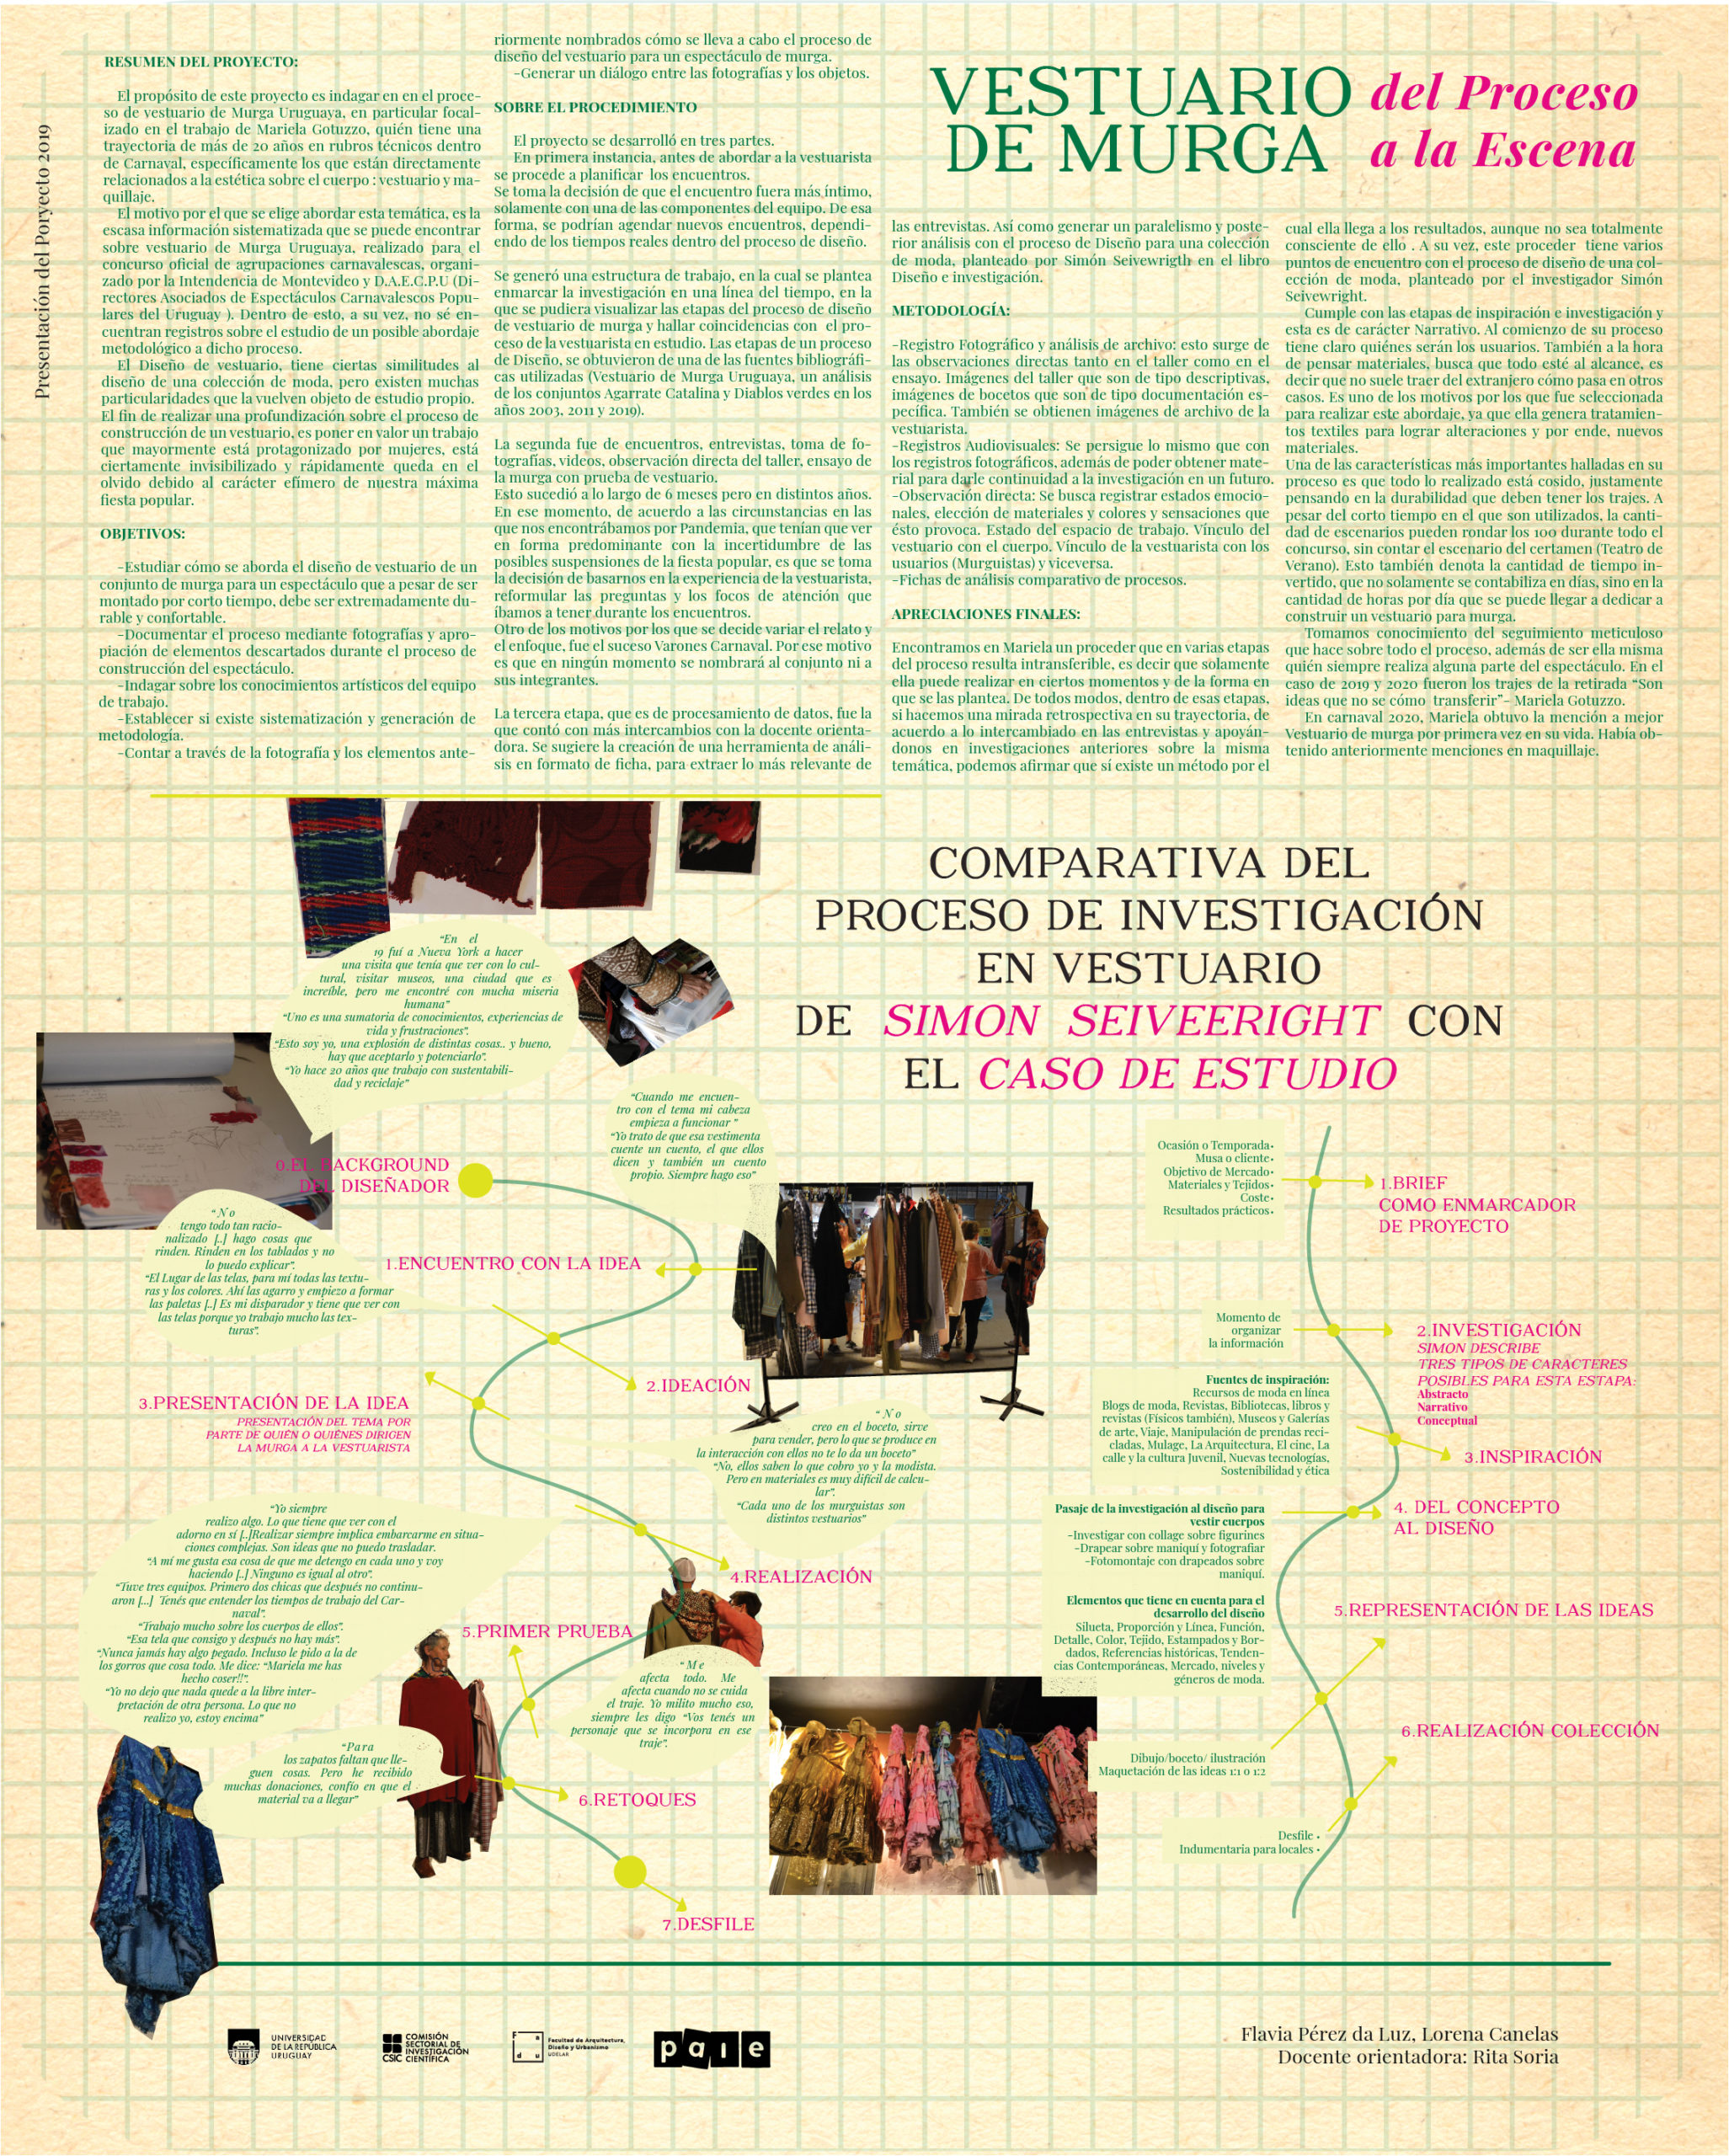 Presentación del Poryecto 2019
RESUMEN DEL PROYECTO:
El propósito de este proyecto es indagar en en el proce-
so de vestuario de Murga Uruguaya, en particular focal-
izado en el trabajo de Mariela Gotuzzo, quién tiene una
trayectoria de más de 20 años en rubros técnicos dentro
de Carnaval, específicamente los que están directamente
relacionados a la estética sobre el cuerpo : vestuario y ma-
quillaje.
El motivo por el que se elige abordar esta temática, es la
escasa información sistematizada que se puede encontrar
sobre vestuario de Murga Uruguaya, realizado para el
concurso oficial de agrupaciones carnavalescas, organi-
zado por la Intendencia de Montevideo y D.A.E.C.P.U (Di-
rectores Asociados de Espectáculos Carnavalescos Popu-
lares del Uruguay ). Dentro de esto, a su vez, no sé en-
cuentran registros sobre el estudio de un posible abordaje
metodológico a dicho proceso.
El Diseño de vestuario, tiene ciertas similitudes al
diseño de una colección de moda, pero existen muchas
particularidades que la vuelven objeto de estudio propio.
El fin de realizar una profundización sobre el proceso de
construcción de un vestuario, es poner en valor un trabajo
que mayormente está protagonizado por mujeres, está
ciertamente invisibilizado y rápidamente queda en el
olvido debido al carácter efímero de nuestra máxima
fiesta popular.
OBJETIVOS:
-Estudiar cómo se aborda el diseño de vestuario de un
conjunto de murga para un espectáculo que a pesar de ser
montado por corto tiempo, debe ser extremadamente du-
rable y confortable.
-Documentar el proceso mediante fotografías y apro-
piación de elementos descartados durante el proceso de
construcción del espectáculo.
-Indagar sobre los conocimientos artísticos del equipo
de trabajo.
-Establecer si existe sistematización y generación de
metodología.
-Contar a través de la fotografía y los elementos ante-
riormente nombrados cómo se lleva a cabo el proceso de
diseño del vestuario para un espectáculo de murga.
-Generar un diálogo entre las fotografías y los objetos.
SOBRE EL PROCEDIMIENTO
El proyecto se desarrolló en tres partes.
En primera instancia, antes de abordar a la vestuarista
se procede a planificar los encuentros.
Se toma la decisión de que el encuentro fuera más íntimo,
solamente con una de las componentes del equipo. De esa
forma, se podrían agendar nuevos encuentros, dependi-
endo de los tiempos reales dentro del proceso de diseño.
Se generó una estructura de trabajo, en la cual se plantea
enmarcar la investigación en una línea del tiempo, en la
que se pudiera visualizar las etapas del proceso de diseño
de vestuario de murga y hallar coincidencias con el pro-
ceso de la vestuarista en estudio. Las etapas de un proceso
de Diseño, se obtuvieron de una de las fuentes bibliográfi-
cas utilizadas (Vestuario de Murga Uruguaya, un análisis
de los conjuntos Agarrate Catalina y Diablos verdes en los
años 2003, 2011 y 2019).
La segunda fue de encuentros, entrevistas, toma de fo-
tografías, videos, observación directa del taller, ensayo de
la murga con prueba de vestuario.
Esto sucedió a lo largo de 6 meses pero en distintos años.
En ese momento, de acuerdo a las circunstancias en las
que nos encontrábamos por Pandemia, que tenían que ver
en forma predominante con la incertidumbre de las
posibles suspensiones de la fiesta popular, es que se toma
la decisión de basarnos en la experiencia de la vestuarista,
reformular las preguntas y los focos de atención que
íbamos a tener durante los encuentros.
Otro de los motivos por los que se decide variar el relato y
el enfoque, fue el suceso Varones Carnaval. Por ese motivo
es que en ningún momento se nombrará al conjunto ni a
sus integrantes.
La tercera etapa, que es de procesamiento de datos, fue la
que contó con más intercambios con la docente orienta-
dora. Se sugiere la creación de una herramienta de análi-
sis en formato de ficha, para extraer lo más relevante de
VESTUARIO
DE MURGA
del Proceso
a la Escena
las entrevistas. Así como generar un paralelismo y poste-
rior análisis con el proceso de Diseño para una colección
de moda, planteado por Simón Seivewrigth en el libro
Diseño e investigación.
METODOLOGÍA:
-Registro Fotográfico y análisis de archivo: esto surge de
las observaciones directas tanto en el taller como en el
ensayo. Imágenes del taller que son de tipo descriptivas,
imágenes de bocetos que son de tipo documentación es-
pecífica. También se obtienen imágenes de archivo de la
vestuarista.
-Registros Audiovisuales: Se persigue lo mismo que con
los registros fotográficos, además de poder obtener mate-
rial para darle continuidad a la investigación en un futuro.
-Observación directa: Se busca registrar estados emocio-
nales, elección de materiales y colores y sensaciones que
ésto provoca. Estado del espacio de trabajo. Vínculo del
vestuario con el cuerpo. Vínculo de la vestuarista con los
usuarios (Murguistas) y viceversa.
-Fichas de análisis comparativo de procesos.
APRECIACIONES FINALES:
Encontramos en Mariela un proceder que en varias etapas
del proceso resulta intransferible, es decir que solamente
ella puede realizar en ciertos momentos y de la forma en
que se las plantea. De todos modos, dentro de esas etapas,
si hacemos una mirada retrospectiva en su trayectoria, de
acuerdo a lo intercambiado en las entrevistas y apoyán-
donos en investigaciones anteriores sobre la misma
temática, podemos afirmar que sí existe un método por el
cual ella llega a los resultados, aunque no sea totalmente
consciente de ello . A su vez, este proceder tiene varios
puntos de encuentro con el proceso de diseño de una col-
ección de moda, planteado por el investigador Simón
Seivewright.
Cumple con las etapas de inspiración e investigación y
esta es de carácter Narrativo. Al comienzo de su proceso
tiene claro quiénes serán los usuarios. También a la hora
de pensar materiales, busca que todo esté al alcance, es
decir que no suele traer del extranjero cómo pasa en otros
casos. Es uno de los motivos por los que fue seleccionada
para realizar este abordaje, ya que ella genera tratamien-
tos textiles para lograr alteraciones y por ende, nuevos
materiales.
Una de las características más importantes halladas en su
proceso es que todo lo realizado está cosido, justamente
pensando en la durabilidad que deben tener los trajes. A
pesar del corto tiempo en el que son utilizados, la canti-
dad de escenarios pueden rondar los 100 durante todo el
concurso, sin contar el escenario del certamen (Teatro de
Verano). Esto también denota la cantidad de tiempo in-
vertido, que no solamente se contabiliza en días, sino en la
cantidad de horas por día que se puede llegar a dedicar a
construir un vestuario para murga.
Tomamos conocimiento del seguimiento meticuloso
que hace sobre todo el proceso, además de ser ella misma
quién siempre realiza alguna parte del espectáculo. En el
caso de 2019 y 2020 fueron los trajes de la retirada “Son
ideas que no se cómo transferir”- Mariela Gotuzzo.
En carnaval 2020, Mariela obtuvo la mención a mejor
Vestuario de murga por primera vez en su vida. Había ob-
tenido anteriormente menciones en maquillaje.
COMPARATIVA DEL
PROCESO DE INVESTIGACIÓN
EN VESTUARIO
DE SIMON SEIVEERIGHT CON
EL CASO DE ESTUDIO
“En el
19 fuí a Nueva York a hacer
una visita que tenía que ver con lo cul-
tural, visitar museos, una ciudad que es
increíble, pero me encontré con mucha miseria
humana”
“Uno es una sumatoria de conocimientos, experiencias de
vida y frustraciones”.
“Esto soy yo, una explosión de distintas cosas.. y bueno,
hay que aceptarlo y potenciarlo”.
“Yo hace 20 años que trabajo con sustentabili-
dad y reciclaje”
0.EL BACKGROUND
DEL DISEÑADOR
“Cuando me encuen-
tro con el tema mi cabeza
empieza a funcionar ”
“Yo trato de que esa vestimenta
cuente un cuento, el que ellos
dicen y también un cuento
propio. Siempre hago eso”
1.ENCUENTRO CON LA IDEA
“No
tengo todo tan racio-
nalizado [..] hago cosas que
rinden. Rinden en los tablados y no
lo puedo explicar”.
“El Lugar de las telas, para mí todas las textu-
ras y los colores. Ahí las agarro y empiezo a formar
las paletas [..] Es mi disparador y tiene que ver con
las telas porque yo trabajo mucho las tex-
turas”.
2.IDEACIÓN
3.PRESENTACIÓN DE LA IDEA
PRESENTACIÓN DEL TEMA POR
PARTE DE QUIÉN O QUIÉNES DIRIGEN
LA MURGA A LA VESTUARISTA
“No
creo en el boceto, sirve
para vender, pero lo que se produce en
la interacción con ellos no te lo da un boceto”
“No, ellos saben lo que cobro yo y la modista.
Pero en materiales es muy difícil de calcu-
lar”.
“Cada uno de los murguistas son
distintos vestuarios”
4.REALIZACIÓN
“Yo siempre
realizo algo. Lo que tiene que ver con el
adorno en sí [..]Realizar siempre implica embarcarme en situa-
ciones complejas. Son ideas que no puedo trasladar.
“A mí me gusta esa cosa de que me detengo en cada uno y voy
haciendo [..] Ninguno es igual al otro”.
“Tuve tres equipos. Primero dos chicas que después no continu-
aron [...] Tenés que entender los tiempos de trabajo del Car-
naval”.
“Trabajo mucho sobre los cuerpos de ellos”.
“Esa tela que consigo y después no hay más”.
“Nunca jamás hay algo pegado. Incluso le pido a la de
los gorros que cosa todo. Me dice: “Mariela me has
hecho coser!!”.
“Yo no dejo que nada quede a la libre inter-
pretación de otra persona. Lo que no
realizo yo, estoy encima”
5.PRIMER PRUEBA
“Me
afecta todo. Me
afecta cuando no se cuida
el traje. Yo milito mucho eso,
siempre les digo “Vos tenés un
personaje que se incorpora en ese
traje”.
“Para
los zapatos faltan que lle-
guen cosas. Pero he recibido
muchas donaciones, confío en que el
material va a llegar”
6.RETOQUES
7.DESFILE
Ocasión o Temporada•
Musa o cliente•
Objetivo de Mercado•
Materiales y Tejidos•
Coste•
Resultados prácticos•
1.BRIEF
COMO ENMARCADOR
DE PROYECTO
Momento de
organizar
la información
2.INVESTIGACIÓN
SIMON DESCRIBE
TRES TIPOS DE CARACTERES
POSIBLES PARA ESTA ESTAPA:
Abstracto
Narrativo
Conceptual
Fuentes de inspiración:
Recursos de moda en línea
Blogs de moda, Revistas, Bibliotecas, libros y
revistas (Físicos también), Museos y Galerías
de arte, Viaje, Manipulación de prendas reci-
cladas, Mulage, La Arquitectura, El cine, La
calle y la cultura Juvenil, Nuevas tecnologías,
Sostenibilidad y ética
3.INSPIRACIÓN
Pasaje de la investigación al diseño para
vestir cuerpos
-Investigar con collage sobre figurines
-Drapear sobre maniquí y fotografiar
-Fotomontaje con drapeados sobre
maniquí.
4. DEL CONCEPTO
AL DISEÑO
Elementos que tiene en cuenta para el
desarrollo del diseño
Silueta, Proporción y Línea, Función,
Detalle, Color, Tejido, Estampados y Bor-
dados, Referencias históricas, Tenden-
cias Contemporáneas, Mercado, niveles y
géneros de moda.
5.REPRESENTACIÓN DE LAS IDEAS
Dibujo/boceto/ ilustración
Maquetación de las ideas 1:1 o 1:2
6.REALIZACIÓN COLECCIÓN
Desfile •
Indumentaria para locales •
UNIVERSIDAD
DE LA REPÚBLICA
URUGUAY
CSIC
COMISIÓN
SECTORIAL DE
INVESTIGACIÓN
CIENTÍFICA
F a
d u
Facultad de Arquitectura,
Diseño y Urbanismo
UDELAR
paie
Flavia Pérez da Luz, Lorena Canelas
Docente orientadora: Rita Soria